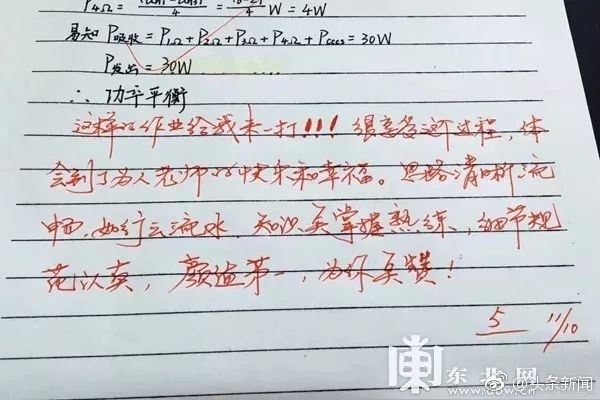 P4Ω = W = 4W
易知 P吸收 = P1Ω + P2Ω + P3Ω + P4Ω + Pcccs = 30W
P发出 = 30W
∴ 功率平衡
这样的作业给我来一打!!! 很享受这个过程,体
会到了为人老师的快乐和幸福。思路清晰流
畅,如行云流水,知识点掌握熟练,细节规
范认真,颜值第一,为你点赞!
5 11/10
东北网
www.dbw.cn
@头条新闻